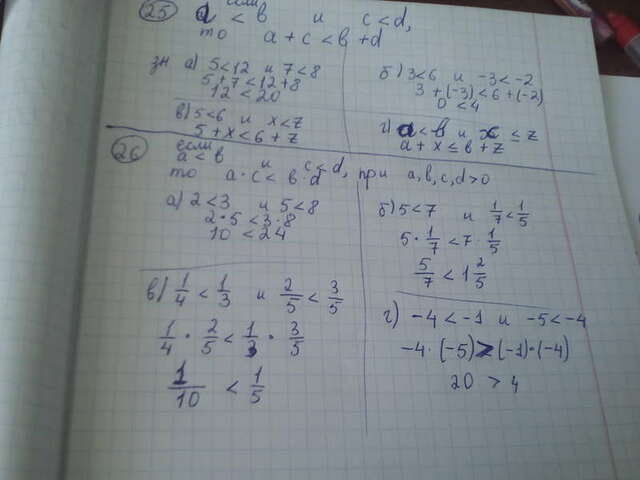 25 если
a < b и c < d,
то a + c < b + d
зн а) 5 < 12 и 7 < 8
5 + 7 < 12 + 8
12 < 20
б) 3 < 6 и -3 < -2
3 + (-3) < 6 + (-2)
0 < 4
в) 5 < 6 и x < z
5 + x < 6 + z
г) a < b и x ≤ z
a + x ≤ b + z
26 если
a < b и c < d,
то a · c < b · d, при a, b, c, d > 0
а) 2 < 3 и 5 < 8
2 · 5 < 3 · 8
10 < 24
б) 5 < 7 и 1/7 < 1/5
5 · 1/7 < 7 · 1/5
5/7 < 1 2/5
в) 1/4 < 1/3 и 2/5 < 3/5
1/4 · 2/5 < 1/3 · 3/5
1/10 < 1/5
г) -4 < -1 и -5 < -4
-4 · (-5) > (-1) · (-4)
20 > 4